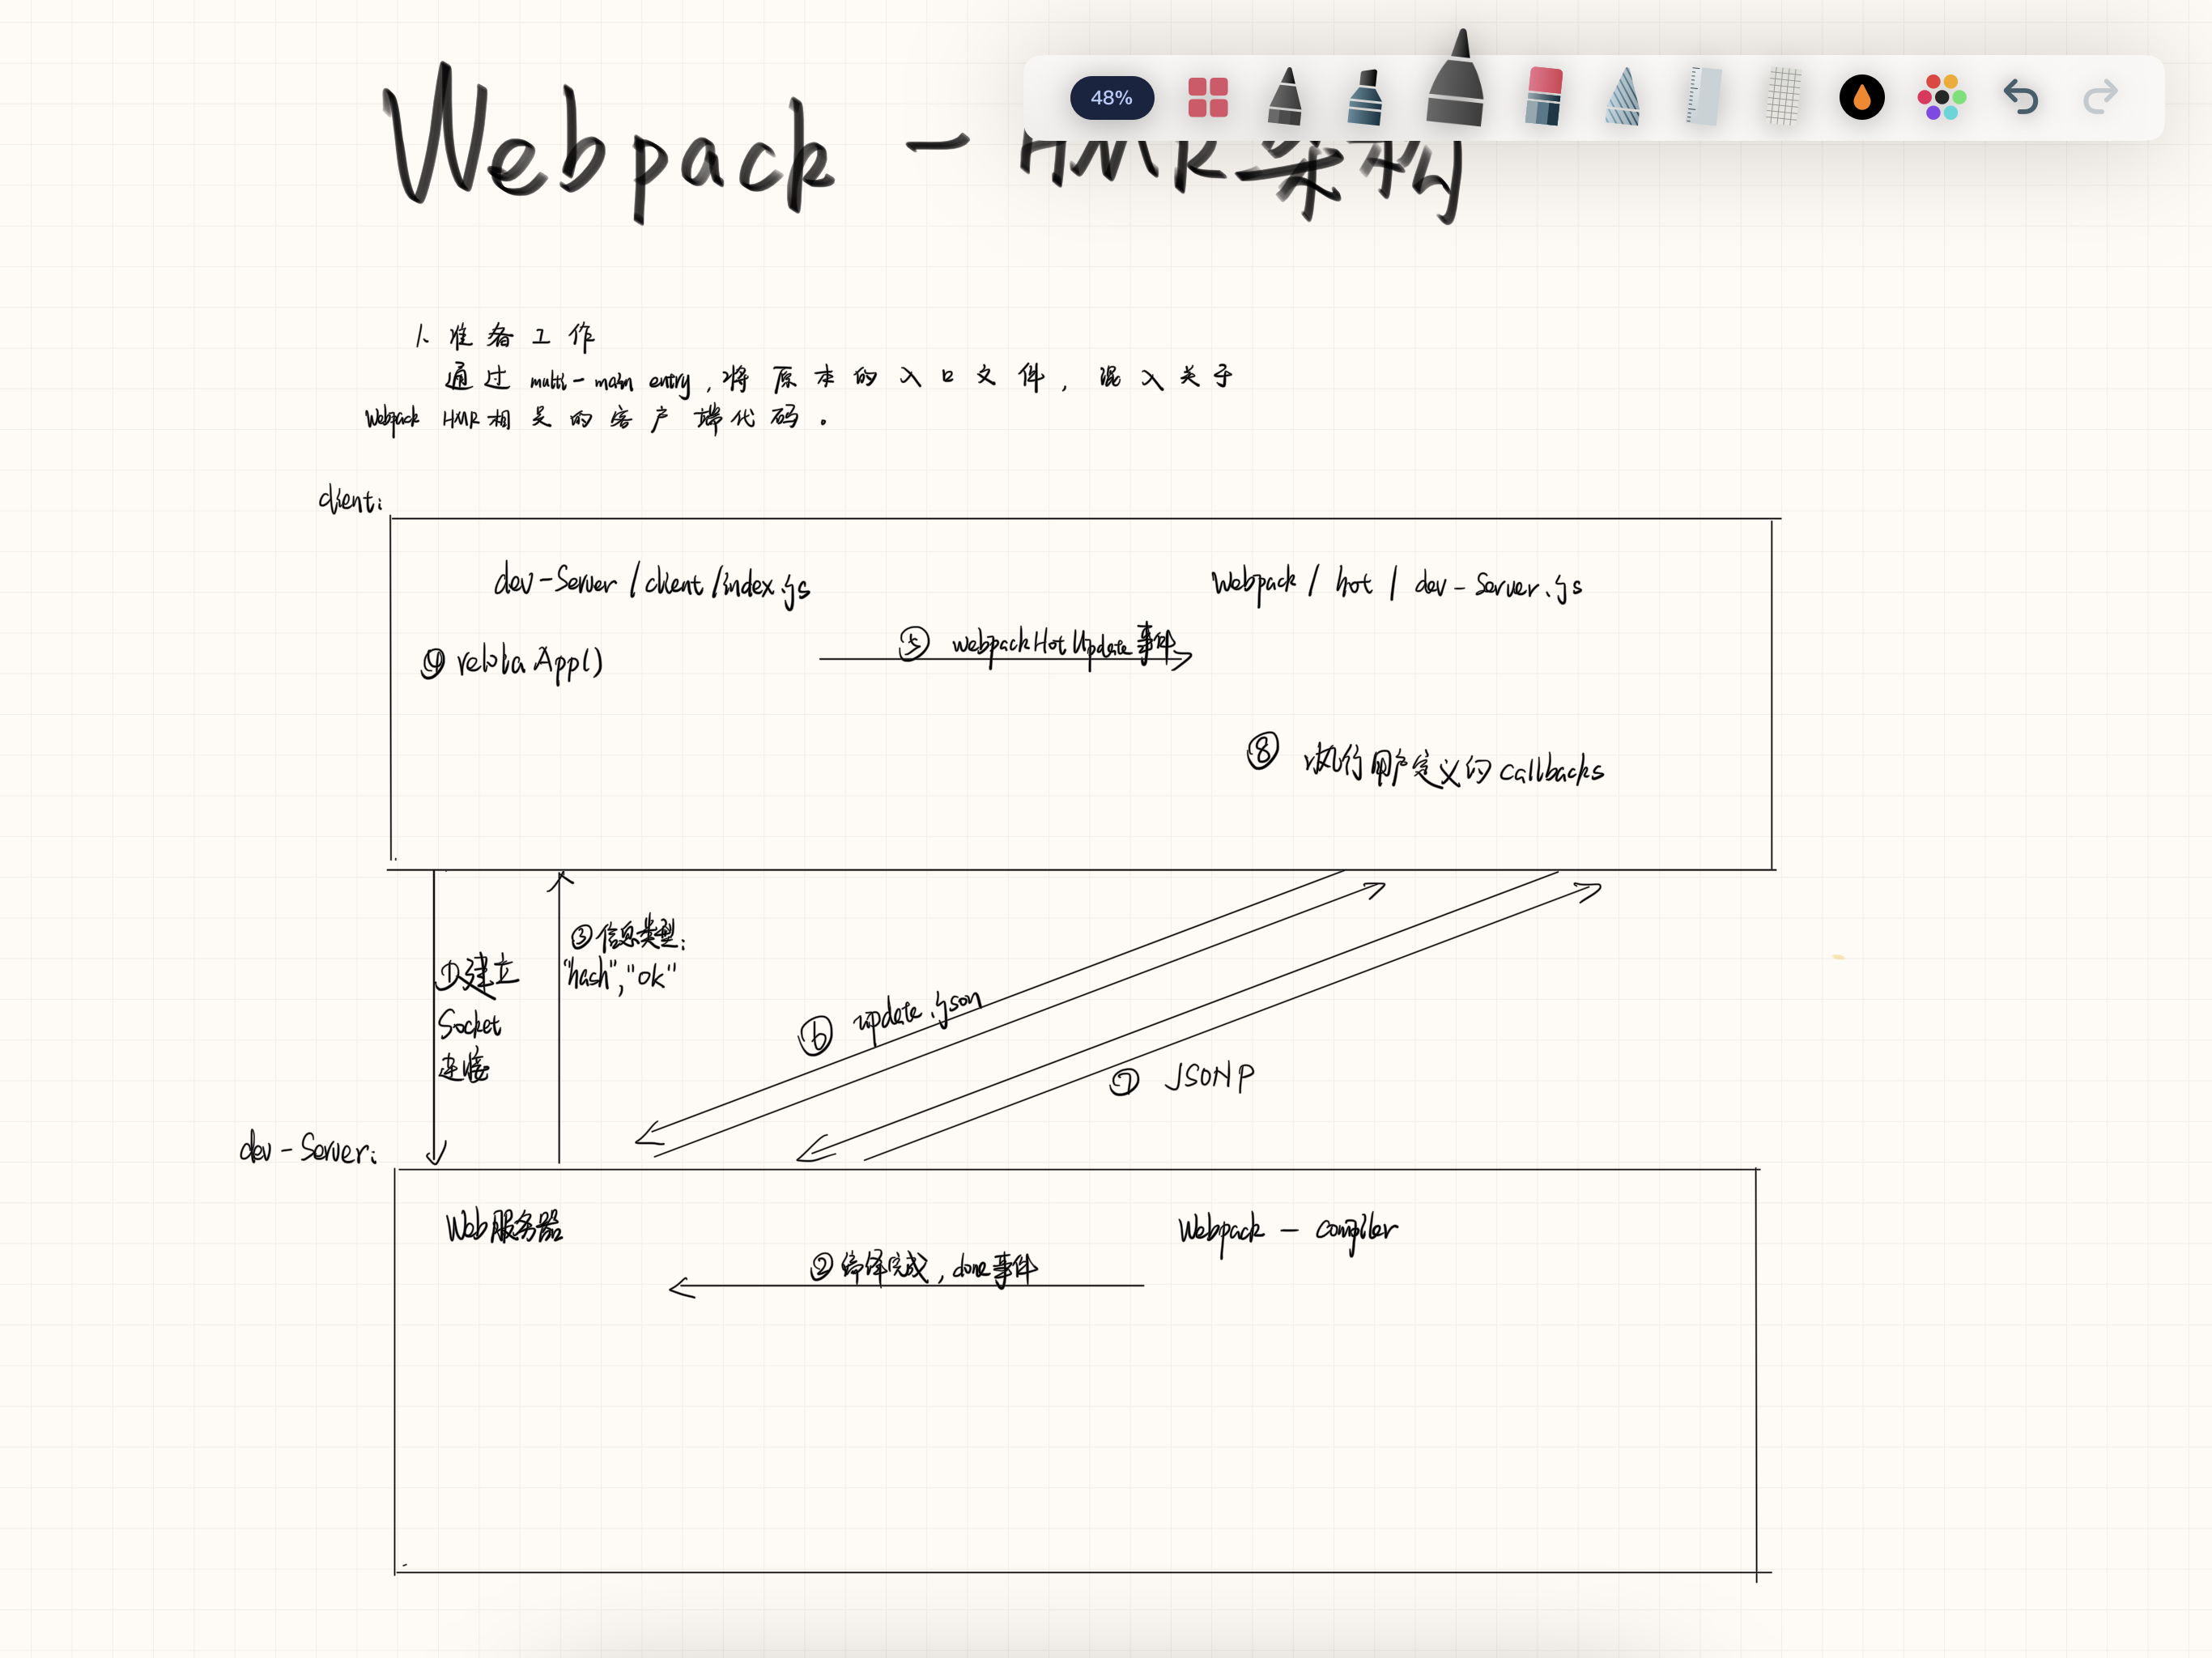 48%
Webpack - HMR架构
1、准备工作
通过 multi-main entry,将原本的入口文件,混入关于
Webpack HMR相关的客户端代码。
client:
dev-Server/client/index.js
Webpack/hot/dev-Server.js
⑤ webpackHotUpdate事件
④ reloba App()
⑧ 执行用户定义的callbacks
③信息类型:
"hash","ok"
①建立
Socket
连接
⑥ update.json
⑦ JSONP
dev-Server:
Web服务器
Webpack - compiler
②编译完成,done事件